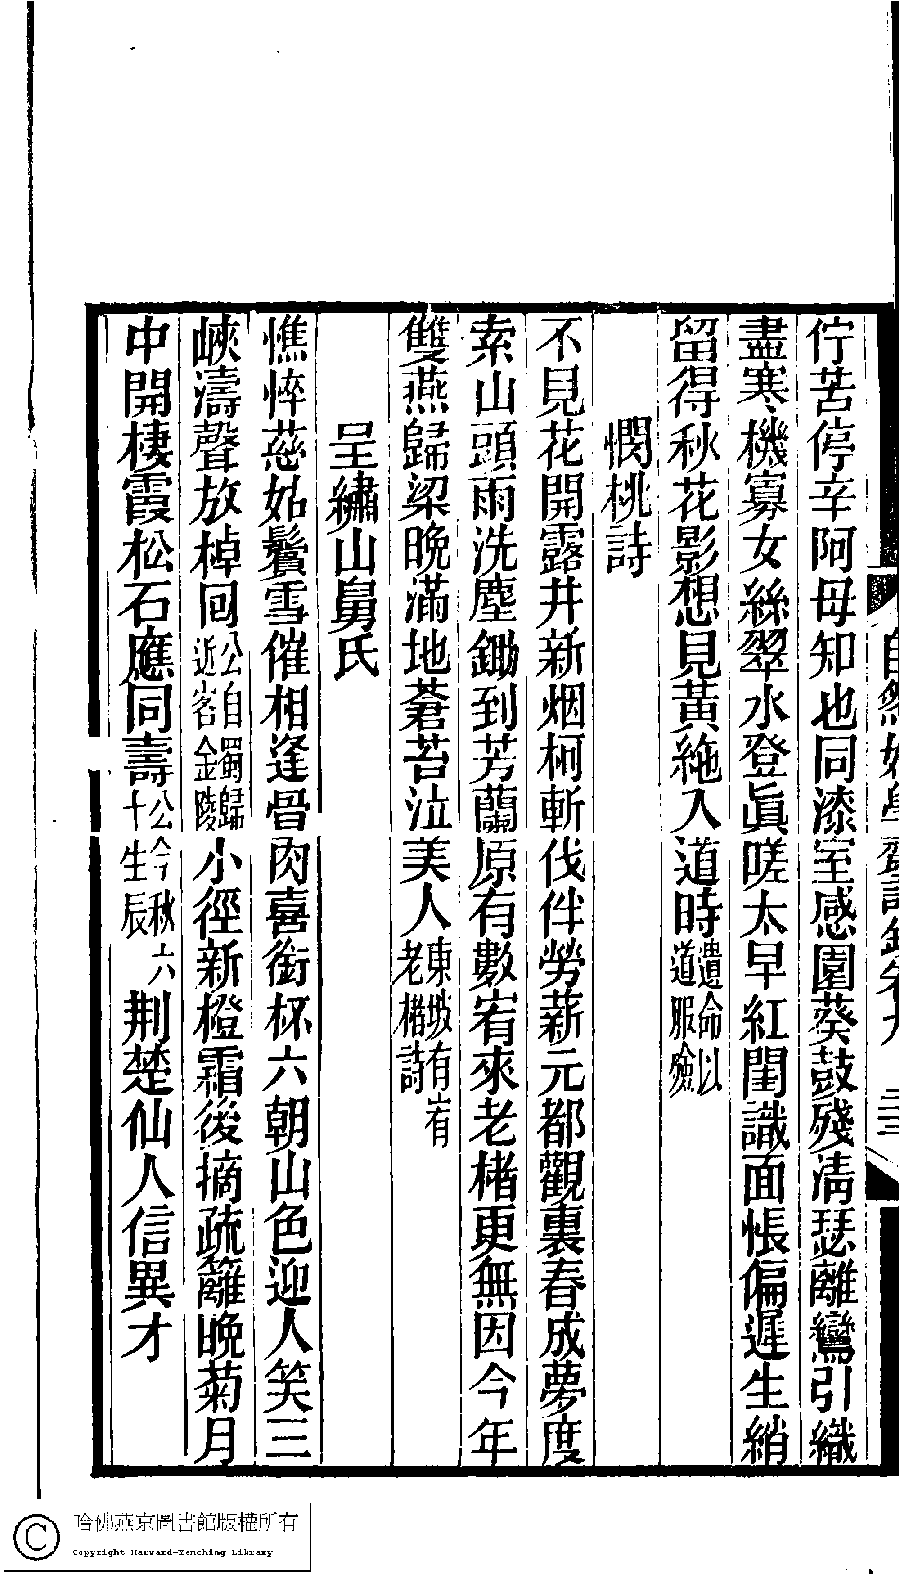 佇苦停辛阿母知也同漆室感園葵鼓殘淸瑟離鸞引織
盡寒機寡女絲翠水登眞嗟太早紅閨識面悵偏遲生綃
留得秋花影想見黃絁入道時遺命以道服殮
憫桃詩
不見花開露井新烟柯斬伐伴勞薪元都觀裏春成夢度
索山頭雨洗塵鋤到芳蘭原有數宥來老楮更無因今年
雙燕歸梁晚滿地蒼苔泣美人東坡有宥老楮詩
呈繡山舅氏
憔悴慈姑鬢雪催相逢骨肉喜銜杯六朝山色迎人笑三
峽濤聲放棹回公自蜀歸近客金陵小徑新橙霜後摘疏籬晚菊月
中開棲霞松石應同壽公今秋六十生辰荆楚仙人信異才
自然好學齋詩鈔卷九
哈佛燕京圖書館版權所有
Copyright Harvard-Yenching Library